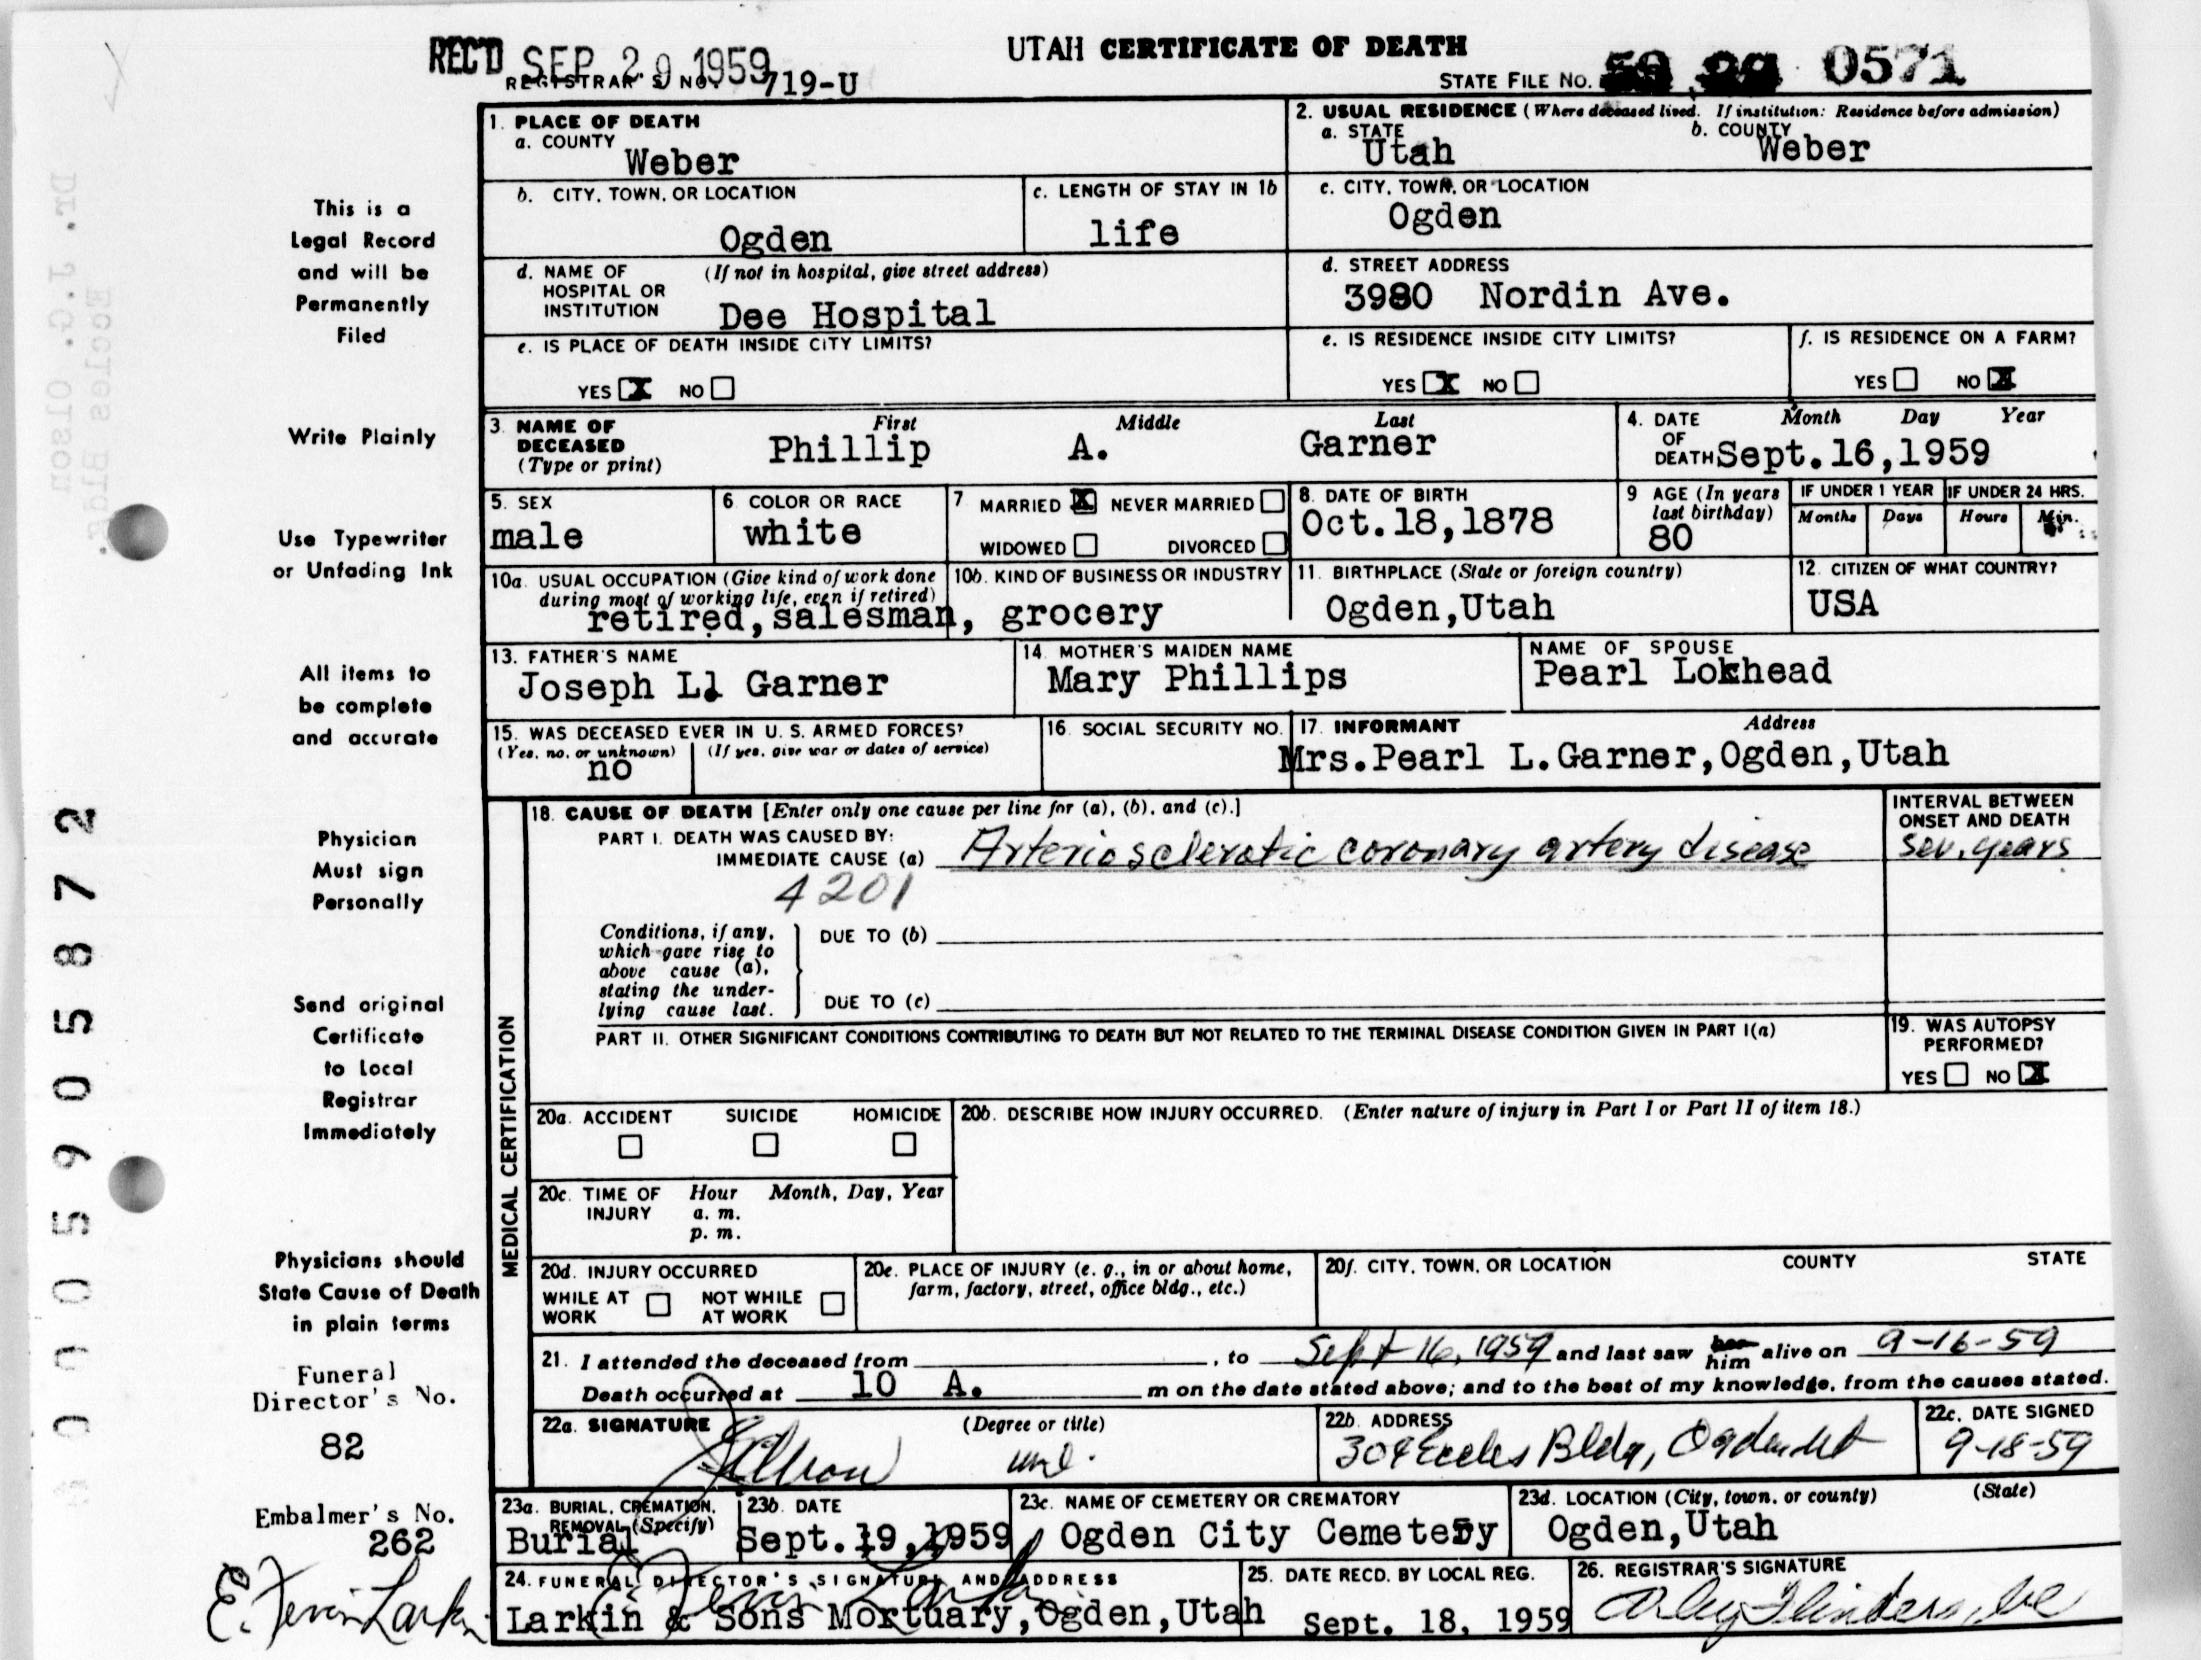 REC'D SEP 29 1959
UTAH CERTIFICATE OF DEATH
REGISTRAR'S NO. 719-U
STATE FILE NO. 59 29 0571
This is a
Legal Record
and will be
Permanently
Filed
Write Plainly
Use Typewriter
or Unfading Ink
All items to
be complete
and accurate
Physician
Must sign
Personally
Send original
Certificate
to Local
Registrar
Immediately
Physicians should
State Cause of Death
in plain terms
Funeral
Director's No.
82
Embalmer's No.
262
Dr. J.G. Olson
Eccles Bldg.
1. PLACE OF DEATH
a. COUNTY
Weber
2. USUAL RESIDENCE (Where deceased lived. If institution: Residence before admission)
a. STATE
Utah
b. COUNTY
Weber
b. CITY, TOWN, OR LOCATION
Ogden
c. LENGTH OF STAY IN 1b
life
c. CITY, TOWN, OR LOCATION
Ogden
d. NAME OF HOSPITAL OR INSTITUTION
(If not in hospital, give street address)
Dee Hospital
d. STREET ADDRESS
3980 Nordin Ave.
e. IS PLACE OF DEATH INSIDE CITY LIMITS?
YES X NO
e. IS RESIDENCE INSIDE CITY LIMITS?
YES X NO
f. IS RESIDENCE ON A FARM?
YES NO X
3. NAME OF DECEASED (Type or print)
First Middle Last
Phillip A. Garner
4. DATE OF DEATH
Month Day Year
Sept.16,1959
5. SEX
male
6. COLOR OR RACE
white
7. MARRIED X NEVER MARRIED
WIDOWED DIVORCED
8. DATE OF BIRTH
Oct.18,1878
9. AGE (In years last birthday)
80
IF UNDER 1 YEAR
Months Days
IF UNDER 24 HRS.
Hours Min.
10a. USUAL OCCUPATION (Give kind of work done during most of working life, even if retired)
retired, salesman,
10b. KIND OF BUSINESS OR INDUSTRY
grocery
11. BIRTHPLACE (State or foreign country)
Ogden,Utah
12. CITIZEN OF WHAT COUNTRY?
USA
13. FATHER'S NAME
Joseph L. Garner
14. MOTHER'S MAIDEN NAME
Mary Phillips
NAME OF SPOUSE
Pearl Lokhead
15. WAS DECEASED EVER IN U.S. ARMED FORCES?
(Yes, no, or unknown) (If yes, give war or dates of service)
no
16. SOCIAL SECURITY NO.
17. INFORMANT Address
Mrs.Pearl L.Garner,Ogden,Utah
MEDICAL CERTIFICATION
18. CAUSE OF DEATH [Enter only one cause per line for (a), (b), and (c).]
INTERVAL BETWEEN ONSET AND DEATH
PART I. DEATH WAS CAUSED BY:
IMMEDIATE CAUSE (a) Arteriosclerotic coronary artery disease
Sev. years
4201
Conditions, if any,
which gave rise to
above cause (a),
stating the under-
lying cause last.
DUE TO (b)
DUE TO (c)
PART II. OTHER SIGNIFICANT CONDITIONS CONTRIBUTING TO DEATH BUT NOT RELATED TO THE TERMINAL DISEASE CONDITION GIVEN IN PART I(a)
19. WAS AUTOPSY PERFORMED?
YES NO X
20a. ACCIDENT SUICIDE HOMICIDE
20b. DESCRIBE HOW INJURY OCCURRED. (Enter nature of injury in Part I or Part II of item 18.)
20c. TIME OF INJURY
Hour Month, Day, Year
a. m.
p. m.
20d. INJURY OCCURRED
WHILE AT WORK NOT WHILE AT WORK
20e. PLACE OF INJURY (e. g., in or about home, farm, factory, street, office bldg., etc.)
20f. CITY, TOWN, OR LOCATION COUNTY STATE
21. I attended the deceased from , to Sept 16, 1959 and last saw her him alive on 9-16-59
Death occurred at 10 A. m on the date stated above; and to the best of my knowledge, from the causes stated.
22a. SIGNATURE (Degree or title)
JGOlson md.
22b. ADDRESS
304 Eccles Bldg, Ogden Ut
22c. DATE SIGNED
9-18-59
23a. BURIAL, CREMATION, REMOVAL (Specify)
Burial
23b. DATE
Sept.19,1959
23c. NAME OF CEMETERY OR CREMATORY
Ogden City Cemetery
23d. LOCATION (City, town, or county) (State)
Ogden,Utah
24. FUNERAL DIRECTOR'S SIGNATURE AND ADDRESS
Larkin & Sons Mortuary,Ogden,Utah
25. DATE RECD. BY LOCAL REG.
Sept. 18, 1959
26. REGISTRAR'S SIGNATURE
E. Larkin